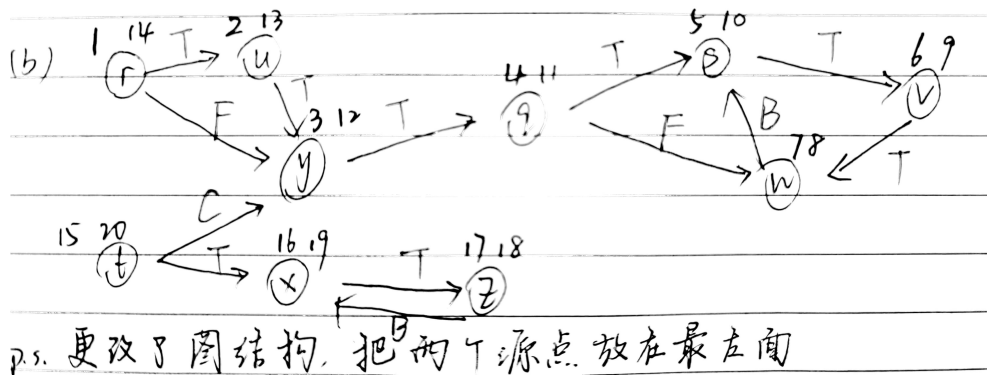 (b)
1 14 r T 2 13 u
F T 3 12 y T 4 11 q T 5 10 s T 6 9 v
F B 7 8 w T
15 20 t C T 16 19 x T 17 18 z
B
p.s. 更改了图结构, 把两个源点放在最左面